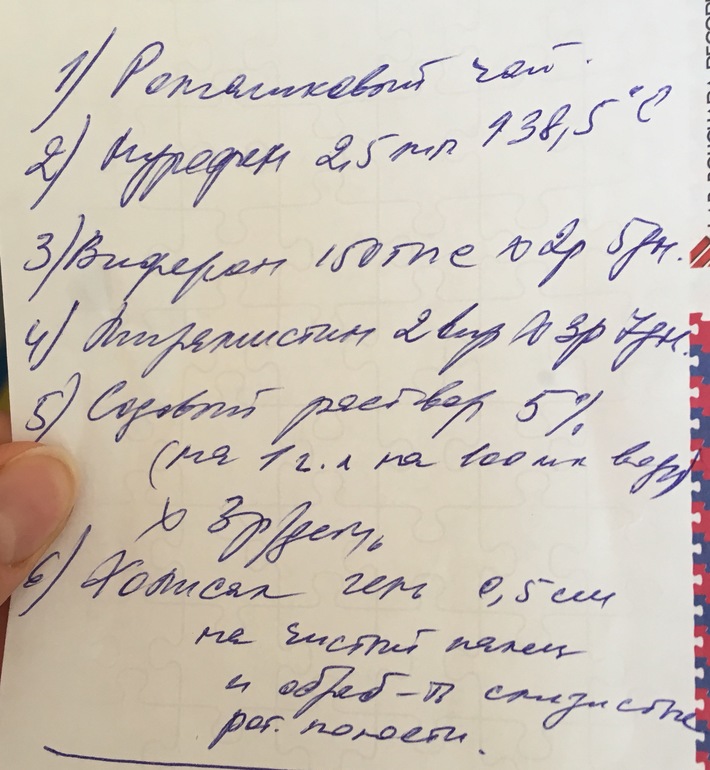 1) Ромашковый чай.
2) Нурофен 2,5 мл ↑38,5°C
3) Виферон 150 тыс x 2р 5дн.
4) Мирамистин 2 впр x 3р 7дн.
5) Содовый раствор 5%
(на 1 г.л на 100 мл воды)
x 3р/день
6) Холисал гель 0,5 см
на чистый палец
и обраб-ть слизистые
рот. полости.